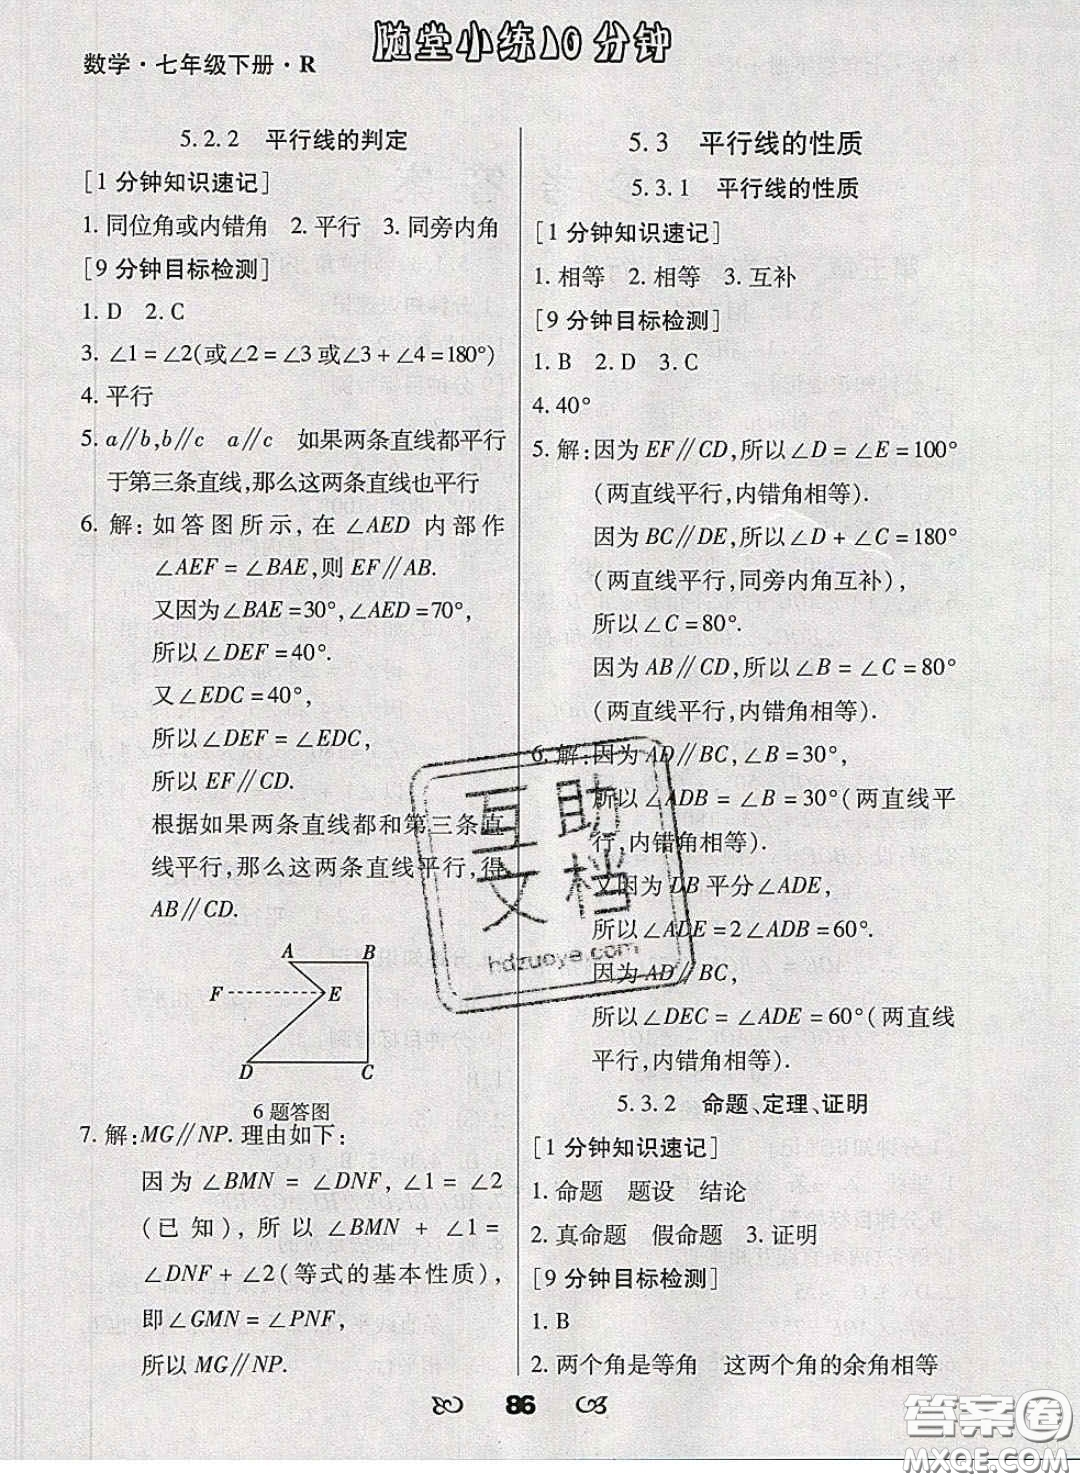 随堂小练10分钟
数学·七年级下册·R
5.2.2 平行线的判定
[1分钟知识速记]
1. 同位角或内错角 2. 平行 3. 同旁内角
[9分钟目标检测]
1. D 2. C
3. ∠1=∠2(或∠2=∠3或∠3+∠4=180°)
4. 平行
5. a∥b,b∥c a∥c 如果两条直线都平行
于第三条直线,那么这两条直线也平行
6. 解:如答图所示,在∠AED内部作
∠AEF=∠BAE,则EF∥AB.
又因为∠BAE=30°,∠AED=70°,
所以∠DEF=40°.
又∠EDC=40°,
所以∠DEF=∠EDC,
所以EF∥CD.
根据如果两条直线都和第三条直
线平行,那么这两条直线平行,得
AB∥CD.
A B
F E
D C
6题答图
7. 解:MG∥NP.理由如下:
因为∠BMN=∠DNF,∠1=∠2
(已知),所以∠BMN+∠1=
∠DNF+∠2(等式的基本性质),
即∠GMN=∠PNF,
所以MG∥NP.
5.3 平行线的性质
5.3.1 平行线的性质
[1分钟知识速记]
1. 相等 2. 相等 3. 互补
[9分钟目标检测]
1. B 2. D 3. C
4. 40°
5. 解:因为EF∥CD,所以∠D=∠E=100°
(两直线平行,内错角相等).
因为BC∥DE,所以∠D+∠C=180°
(两直线平行,同旁内角互补),
所以∠C=80°.
因为AB∥CD,所以∠B=∠C=80°
(两直线平行,内错角相等).
6. 解:因为AD∥BC,∠B=30°,
所以∠ADB=∠B=30°(两直线平
行,内错角相等).
又因为DB平分∠ADE,
所以∠ADE=2∠ADB=60°.
因为AD∥BC,
所以∠DEC=∠ADE=60°(两直线
平行,内错角相等).
5.3.2 命题、定理、证明
[1分钟知识速记]
1. 命题 题设 结论
2. 真命题 假命题 3. 证明
[9分钟目标检测]
1. B
2. 两个角是等角 这两个角的余角相等
86
互助
文档
hdzuoye.com
答案圈
MXQE.COM